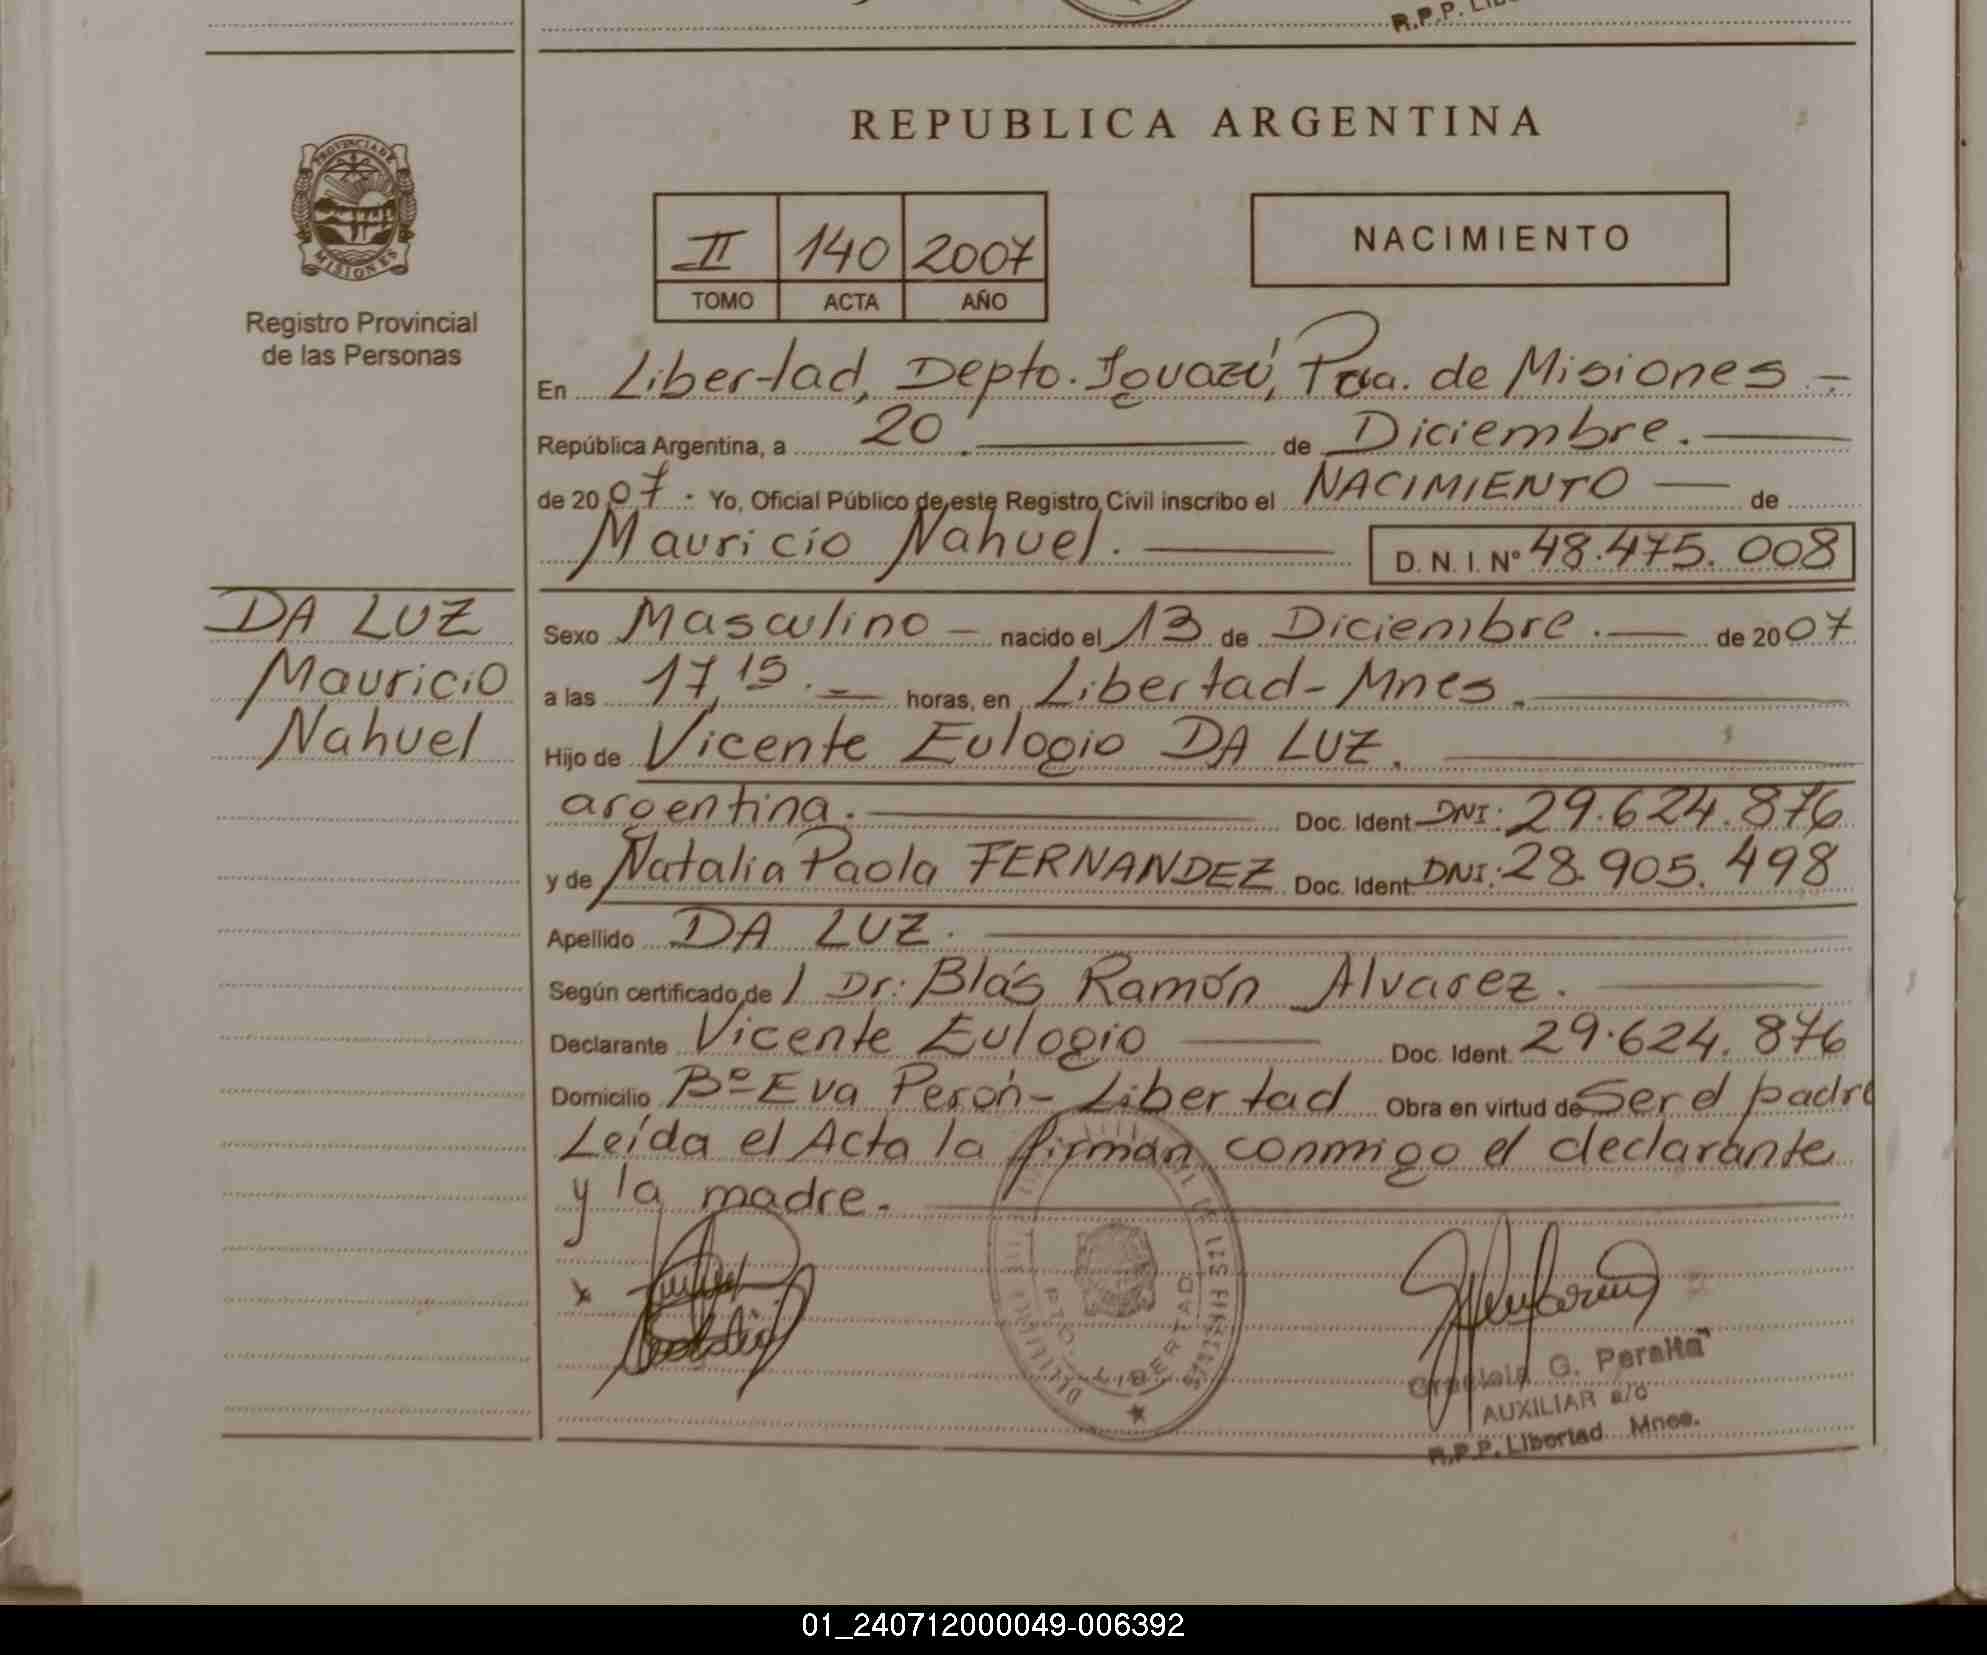 R.P.P.
REPUBLICA ARGENTINA
PROVINCIA DE
MISIONES
Registro Provincial
de las Personas
II 140 2007
TOMO ACTA AÑO
NACIMIENTO
En Libertad, Depto. Iguazú, Pcia. de Misiones -
República Argentina, a 20 de Diciembre.
de 2007 : Yo, Oficial Público de este Registro Civil inscribo el NACIMIENTO de
Mauricio Nahuel. D. N. I. Nº 48.475.008
DA LUZ
Mauricio
Nahuel
Sexo Masculino - nacido el 13 de Diciembre. de 2007
a las 17,15. horas, en Libertad - Mnes.
Hijo de Vicente Eulogio DA LUZ.
argentina. Doc. Ident DNI: 29.624.876
y de Natalia Paola FERNANDEZ Doc. Ident DNI: 28.905.498
Apellido DA LUZ.
Según certificado de / Dr: Blás Ramón Alvarez.
Declarante Vicente Eulogio Doc. Ident. 29.624.876
Domicilio Bº Eva Perón - Libertad Obra en virtud de Ser el padre
Leída el Acta la firman conmigo el declarante
y la madre.
PTO. LIBERTAD
Graciela G. Peralta
AUXILIAR a/c
R.P.P. Libertad Mnes.
01_240712000049-006392